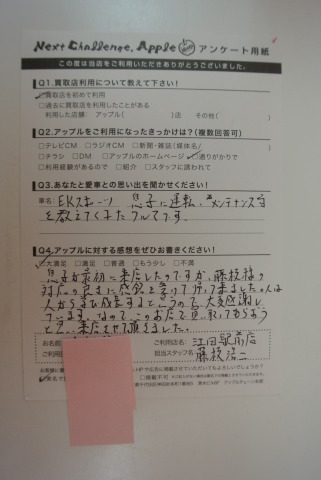 Next Challenge, Apple アンケート用紙
この度は当店をご利用いただきありがとうございました。
Q1.買取店利用について教えて下さい!
□買取店を初めて利用
□過去に買取店を利用したことがある
利用した店舗: アップル( )店 その他( )
Q2.アップルをご利用になったきっかけは?(複数回答可)
□テレビCM □ラジオCM □新聞・雑誌(媒体名/ )
□チラシ □DM □アップルのホームページ □通りがかりで
□利用経験があるので □紹介 □スタッフに誘われて
Q3.あなたと愛車との思い出を聞かせください!
車名: EKスポーツ 息子に運転、メンテナンス等
を教えてくれたクルマです。
Q4.アップルに対する感想をぜひお書きください!
□大満足 □満足 □普通 □もう少し □不満
息子が最初に来店したのですが、藤枝様の
対応の良さに感銘を受けて帰って来ました。人は
人から学び成長すると思うので、大変感謝し
ています。なので、このお店で買い取ってもらおう
と思い来店させて頂きました。
お名前
ご利用店名: 江田駅前店
ご利用
担当スタッフ名: 藤枝浩二